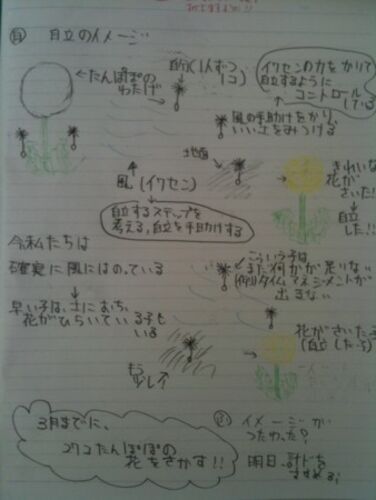 自 自立のイメージ
←たんぽぽのわたげ→
イワセンの力をかりて
自立するように
コントロール
している
風の手助けをかり、
いい土をみつける
土地面
風(イワセン)
自立するステップを
考える,自立を手助けする
きれいな
花が
さいた!!
自立
した!!
今私たちは
確実に風にはのっている
早い子は、土におち、
花がひらいている子も
いる
こういう子は
まだ何かが足りない
(例)タイムマネジメントが
出きない
もう
少し
花がさいた子
(自立した子)
3月までに、
たんぽぽの
花をさかす!!
イメージが
つたわった?
明日、計ドを
すすめる;